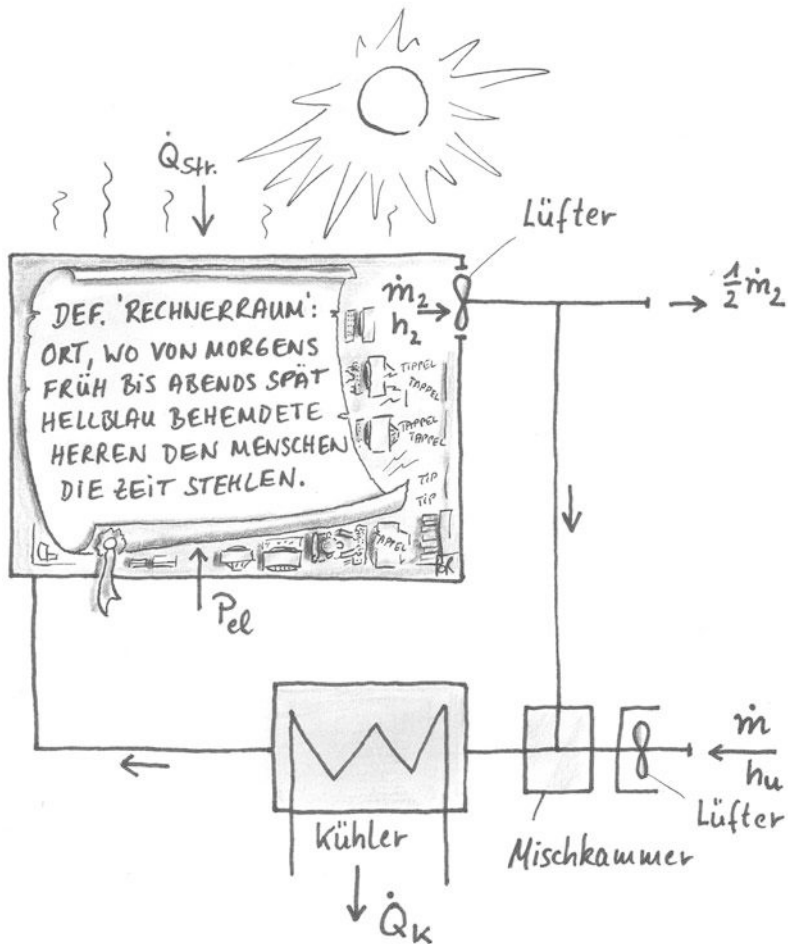 Q̇str.
Lüfter
DEF. 'RECHNERRAUM':
ORT, WO VON MORGENS
FRÜH BIS ABENDS SPÄT
HELLBLAU BEHEMDETE
HERREN DEN MENSCHEN
DIE ZEIT STEHLEN.
ṁ₂
h₂
½ ṁ₂
TIPPEL
TAPPEL
TAPPEL
TAPPEL
TIP
TIP
TAPPEL
Pel
ṁ
hu
Kühler
Mischkammer
Lüfter
Q̇K